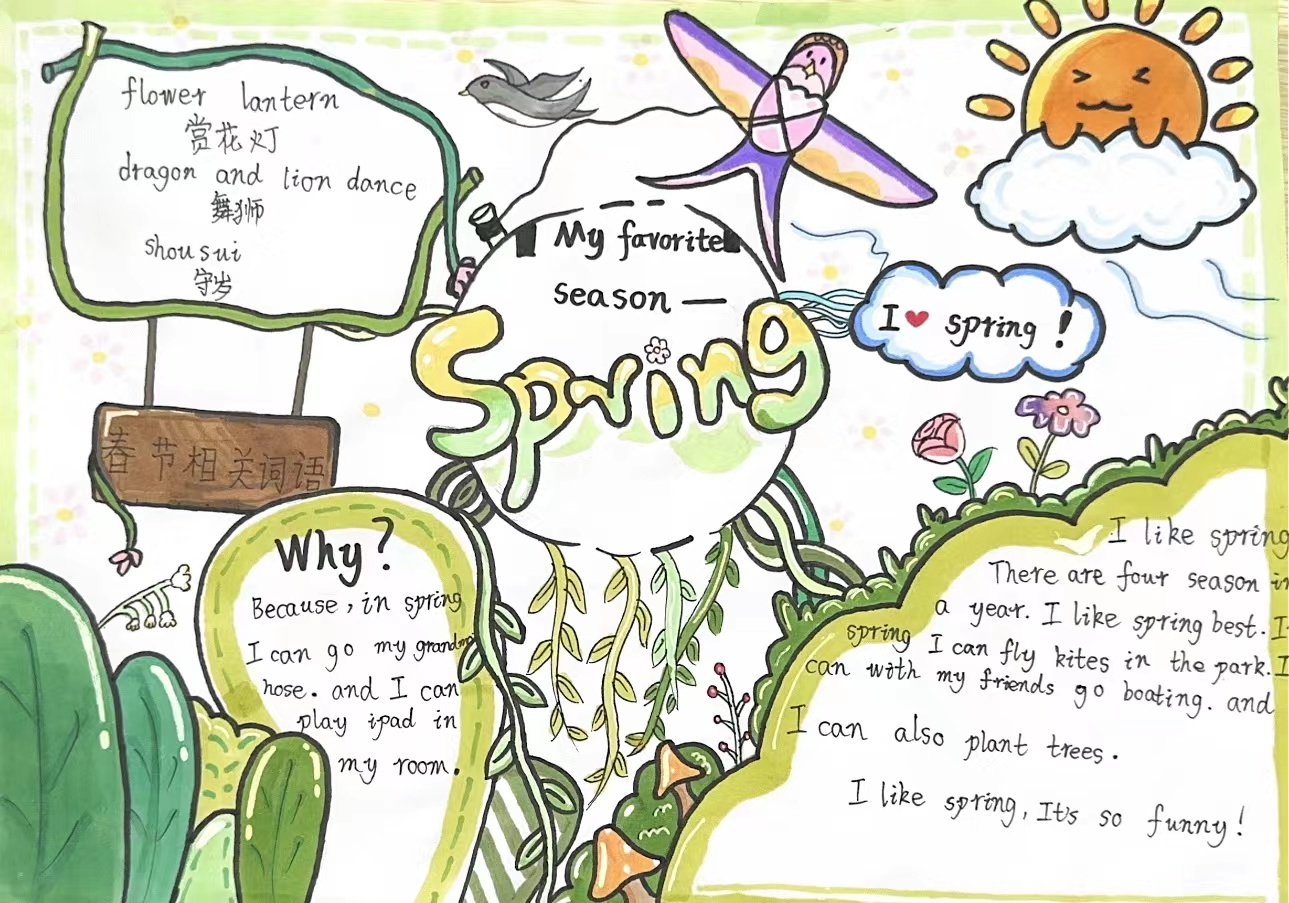 flower lantern
赏花灯
dragon and lion dance
舞狮
shousui
守岁
春节相关词语
My favorite
season —
Spring
I ♥ spring!
Why?
Because, in spring
I can go my grandma
hose. and I can
play ipad in
my room.
I like spring
There are four season in
a year. I like spring best. I
spring I can fly kites in the park. I
can with my friends go boating. and
I can also plant trees.
I like spring, It's so funny!